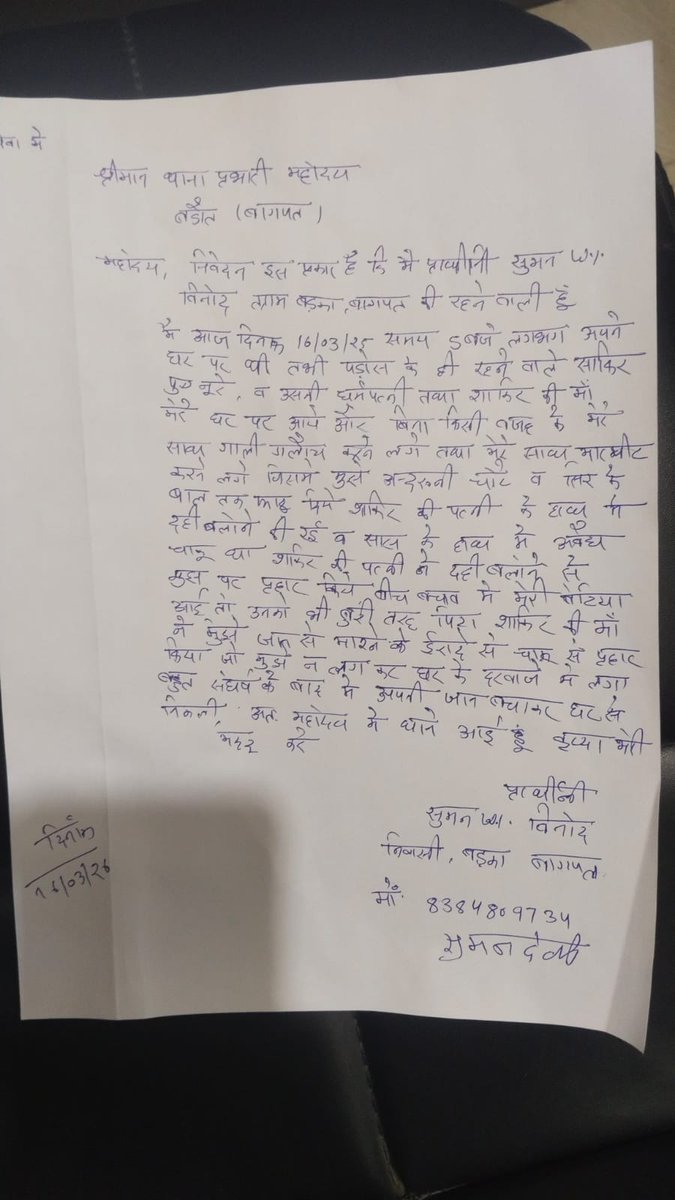 श्रीमान थाना प्रभारी महोदय
बडौत (बागपत)
महोदय, निवेदन इस प्रकार है कि मै प्रार्थीनी सुमन W/.
विनोद ग्राम बड़का, बागपत की रहने वाली हूँ
मै आज दिनांक 16/03/25 समय 5 बजे लगभग अपने
घर पर थी तभी पड़ोस के ही रहने वाले साकिर
पुत्र नूरे, व उसकी धर्मपत्नी तथा शाकिर की माँ
मेरे घर पर आये और बिना किसी वजह के मेरे
साथ गाली गलौच करने लगे तथा मेरे साथ मारपीट
करने लगे जिसमे मुझे अन्दरुनी चोट व सिर के
बाल तक फाड़ दिये शाकिर की पत्नी के हाथ मे
दही बलोने की रई व सास के हाथ मे अवैध
चाकू था शाकिर की पत्नी ने दही बलोने से
मुझ पर प्रहार किये बीच बचाव मे मेरी बेटिया
आई तो उनको भी बुरी तरह पिटा शाकिर की माँ
ने मुझे जान से मारने के ईरादे से चाकू से प्रहार
किया जो मुझे न लग कर घर के दरवाजे मे लगा
बहुत संघर्ष के बाद मे अपनी जान बचाकर घर से
निकली, अतः महोदय मे थाने आई हूं कृप्या मेरी
मदद करे
प्रार्थीनी
सुमन W/. विनोद
निवासी, बड़का बागपत.
मौ. 8384809734
सुमन देवी
दिनांक
16/03/26